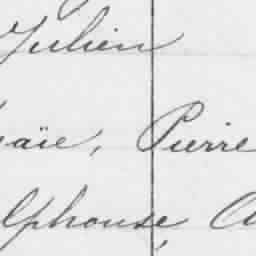 Julien
aïe, Pierre
lphonse, A